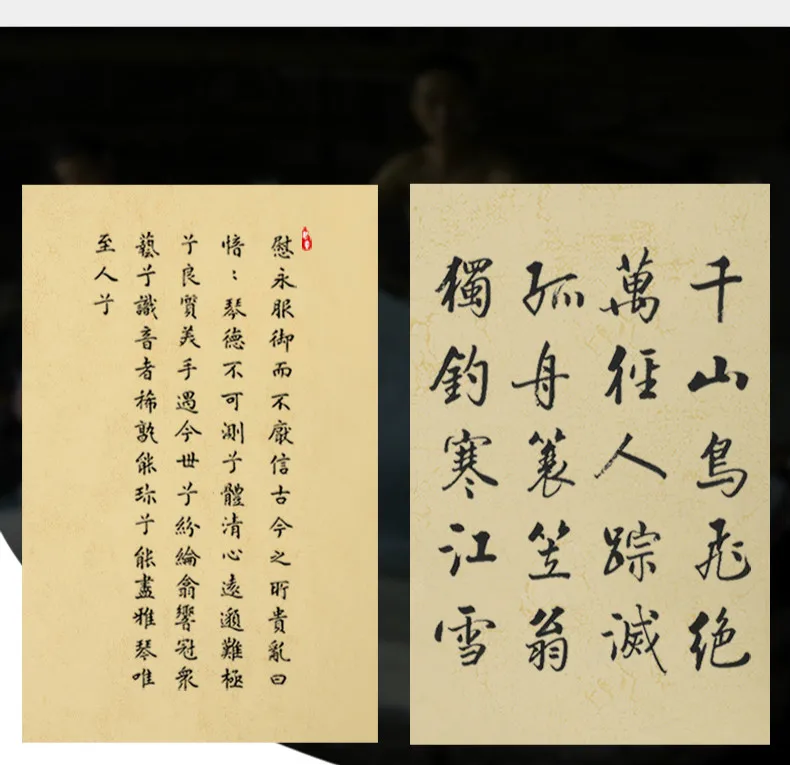 慰永服御而不厭信古今之所貴亂曰
愔：琴德不可測兮體清心遠邈難極
兮良質美手遇今世兮紛綸翕響冠衆
藝兮識音者稀孰能珍兮能盡雅琴唯
至人兮
千山鳥飛絶
萬徑人踪滅
孤舟蓑笠翁
獨釣寒江雪